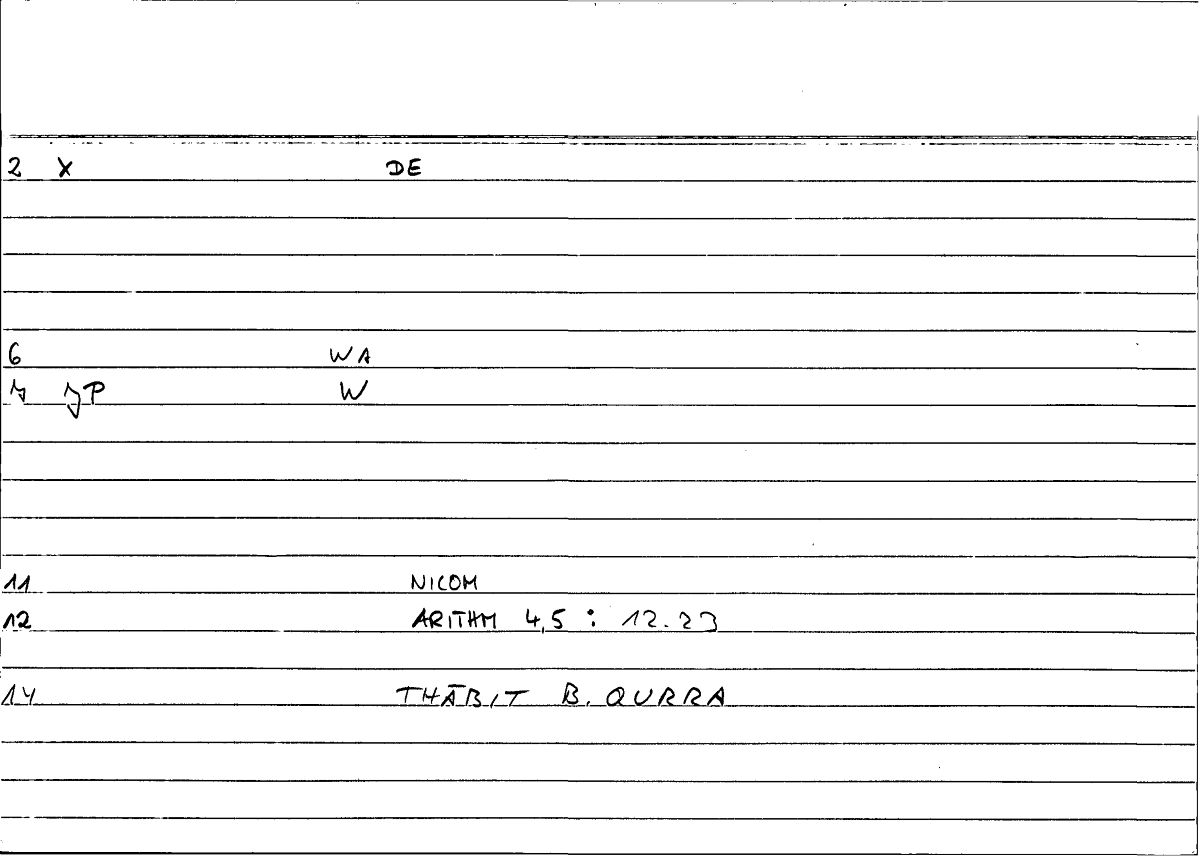 2 X DE
6 WA
7 JP W
11 NICOM
12 ARITHM 4,5 : 12.23
14 THĀBIT B. QURRA